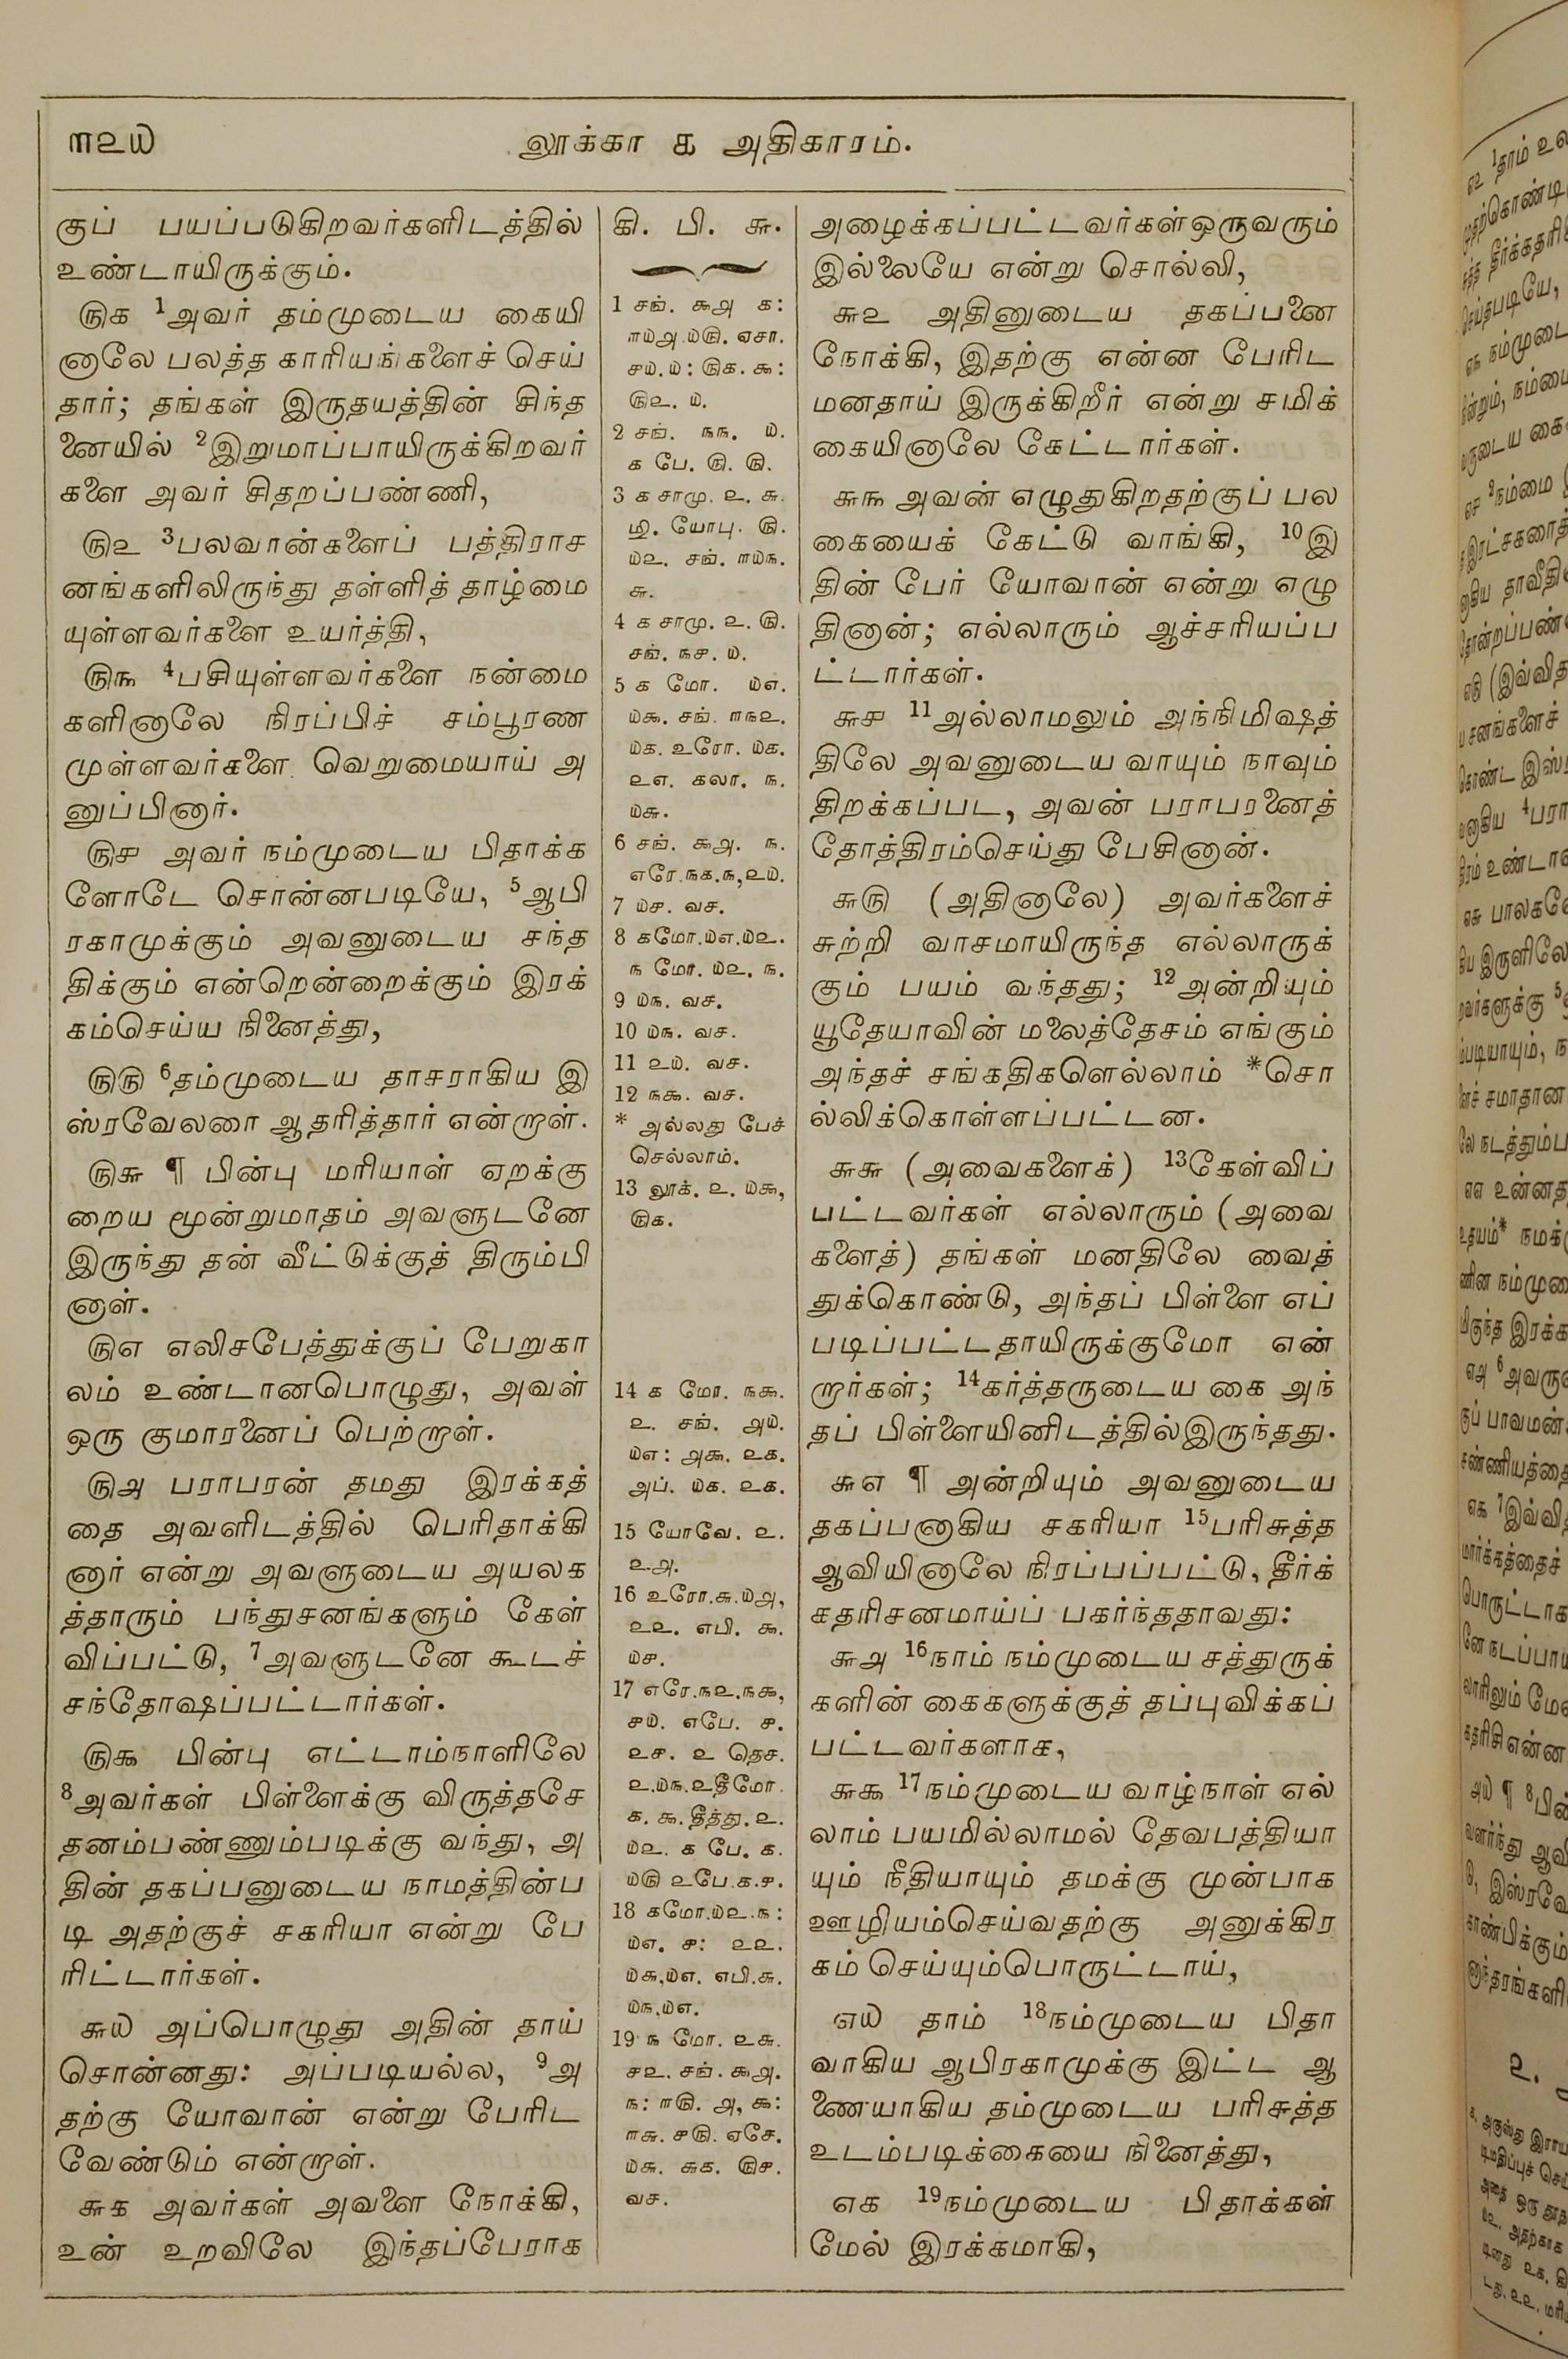 ௱௨௰
லூக்கா ௧ அதிகாரம்.
குப் பயப்படுகிறவர்களிடத்தில்
உண்டாயிருக்கும்.
௫௧ 1அவர் தம்முடைய கையி
னாலே பலத்த காரியங்களைச் செய்
தார்; தங்கள் இருதயத்தின் சிந்த
னையில் 2இறுமாப்பாயிருக்கிறவர்
களை அவர் சிதறப்பண்ணி,
௫௨ 3பலவான்களைப் பத்திராச
னங்களிலிருந்து தள்ளித் தாழ்மை
யுள்ளவர்களை உயர்த்தி,
௫௩ 4பசியுள்ளவர்களை நன்மை
களினாலே நிரப்பிச் சம்பூரண
முள்ளவர்களை வெறுமையாய் அ
னுப்பினார்.
௫௪ அவர் நம்முடைய பிதாக்க
ளோடே சொன்னபடியே, 5ஆபி
ரகாமுக்கும் அவனுடைய சந்த
திக்கும் என்றென்றைக்கும் இரக்
கம்செய்ய நினைத்து,
௫௫ 6தம்முடைய தாசராகிய இ
ஸ்ரவேலரை ஆதரித்தார் என்றாள்.
௫௬ ¶ பின்பு மரியாள் ஏறக்கு
றைய மூன்றுமாதம் அவளுடனே
இருந்து தன் வீட்டுக்குத் திரும்பி
னாள்.
௫௭ எலிசபேத்துக்குப் பேறுகா
லம் உண்டானபொழுது, அவள்
ஒரு குமாரனைப் பெற்றாள்.
௫௮ பராபரன் தமது இரக்கத்
தை அவளிடத்தில் பெரிதாக்கி
னார் என்று அவளுடைய அயலக
த்தாரும் பந்துசனங்களும் கேள்
விப்பட்டு, 7அவளுடனே கூடச்
சந்தோஷப்பட்டார்கள்.
௫௯ பின்பு எட்டாம்நாளிலே
8அவர்கள் பிள்ளைக்கு விருத்தசே
தனம்பண்ணும்படிக்கு வந்து, அ
தின் தகப்பனுடைய நாமத்தின்ப
டி அதற்குச் சகரியா என்று பே
ரிட்டார்கள்.
௬௰ அப்பொழுது அதின் தாய்
சொன்னது: அப்படியல்ல, 9அ
தற்கு யோவான் என்று பேரிட
வேண்டும் என்றாள்.
௬௧ அவர்கள் அவளை நோக்கி,
உன் உறவிலே இந்தப்பேராக
கி. பி. ௬.
1 சங். ௯௮ ௧:
௱௰௮.௰௫. ஏசா.
௪௰.௰: ௫௧. ௯:
௫௨. ௰.
2 சங். ௩௩. ௰.
௧ பே. ௫. ௫.
3 ௧ சாமு. ௨. ௬.
ௐ. யோபு. ௫.
௰௨. சங். ௱௰௩.
௬.
4 ௧ சாமு. ௨. ௫.
சங். ௩௪. ௰.
5 ௧ மோ. ௰௭.
௰௯. சங். ௱௩௨.
௰௧. உரோ. ௰௧.
௨௭. கலா. ௩.
௰௬.
6 சங். ௯௮. ௩.
எரே.௩௧.௩,௨௰.
7 ௰௪. வச.
8 ௧மோ.௰௭.௰௨.
௩ மோ. ௰௨. ௩.
9 ௰௩. வச.
10 ௰௩. வச.
11 ௨௰. வச.
12 ௩௯. வச.
* அல்லது பேச்
செல்லாம்.
13 லூக். ௨. ௰௯,
௫௧.
14 ௧ மோ. ௩௯.
௨. சங். ௮௰.
௰௭: ௮௯. ௨௧.
அப். ௰௧. ௨௧.
15 யோவே. ௨.
௨௮.
16 உரோ.௬.௰௮,
௨௨. எபி. ௯.
௰௪.
17 எரே.௩௨.௩௯,
௪௰. எபே. ௪.
௨௪. ௨ தெச.
௨.௰௩.௨தீமோ.
௧. ௯. தீத்து. ௨.
௰௨. ௧ பே. ௧.
௰௫ ௨பே.௧.௪.
18 ௧மோ.௰௨.௩:
௰௭. ௪: ௨௨.
௰௬,௰௭. எபி.௬.
௰௩,௰௭.
19 ௩ மோ. ௨௬.
௪௨. சங். ௯௮.
௩: ௱௫. ௮, ௯:
௱௬. ௪௫. ஏசே.
௰௬. ௬௧. ௫௪.
வச.
அழைக்கப்பட்டவர்கள்ஒருவரும்
இல்லையே என்று சொல்லி,
௬௨ அதினுடைய தகப்பனை
நோக்கி, இதற்கு என்ன பேரிட
மனதாய் இருக்கிறீர் என்று சமிக்
கையினாலே கேட்டார்கள்.
௬௩ அவன் எழுதுகிறதற்குப் பல
கையைக் கேட்டு வாங்கி, 10இ
தின் பேர் யோவான் என்று எழு
தினான்; எல்லாரும் ஆச்சரியப்ப
ட்டார்கள்.
௬௪ 11அல்லாமலும் அந்நிமிஷத்
திலே அவனுடைய வாயும் நாவும்
திறக்கப்பட, அவன் பராபரனைத்
தோத்திரம்செய்து பேசினான்.
௬௫ (அதினாலே) அவர்களைச்
சுற்றி வாசமாயிருந்த எல்லாருக்
கும் பயம் வந்தது; 12அன்றியும்
யூதேயாவின் மலைத்தேசம் எங்கும்
அந்தச் சங்கதிகளெல்லாம் *சொ
ல்லிக்கொள்ளப்பட்டன.
௬௬ (அவைகளைக்) 13கேள்விப்
பட்டவர்கள் எல்லாரும் (அவை
களைத்) தங்கள் மனதிலே வைத்
துக்கொண்டு, அந்தப் பிள்ளை எப்
படிப்பட்டதாயிருக்குமோ என்
றார்கள்; 14கர்த்தருடைய கை அந்
தப் பிள்ளையினிடத்தில்இருந்தது.
௬௭ ¶ அன்றியும் அவனுடைய
தகப்பனாகிய சகரியா 15பரிசுத்த
ஆவியினாலே நிரப்பப்பட்டு, தீர்க்
கதரிசனமாய்ப் பகர்ந்ததாவது:
௬௮ 16நாம் நம்முடைய சத்துருக்
களின் கைகளுக்குத் தப்புவிக்கப்
பட்டவர்களாக,
௬௯ 17நம்முடைய வாழ்நாள் எல்
லாம் பயமில்லாமல் தேவபத்தியா
யும் நீதியாயும் தமக்கு முன்பாக
ஊழியம்செய்வதற்கு அனுக்கிர
கம் செய்யும்பொருட்டாய்,
௭௰ தாம் 18நம்முடைய பிதா
வாகிய ஆபிரகாமுக்கு இட்ட ஆ
ணையாகிய தம்முடைய பரிசுத்த
உடம்படிக்கையை நினைத்து,
௭௧ 19நம்முடைய பிதாக்கள்
மேல் இரக்கமாகி,